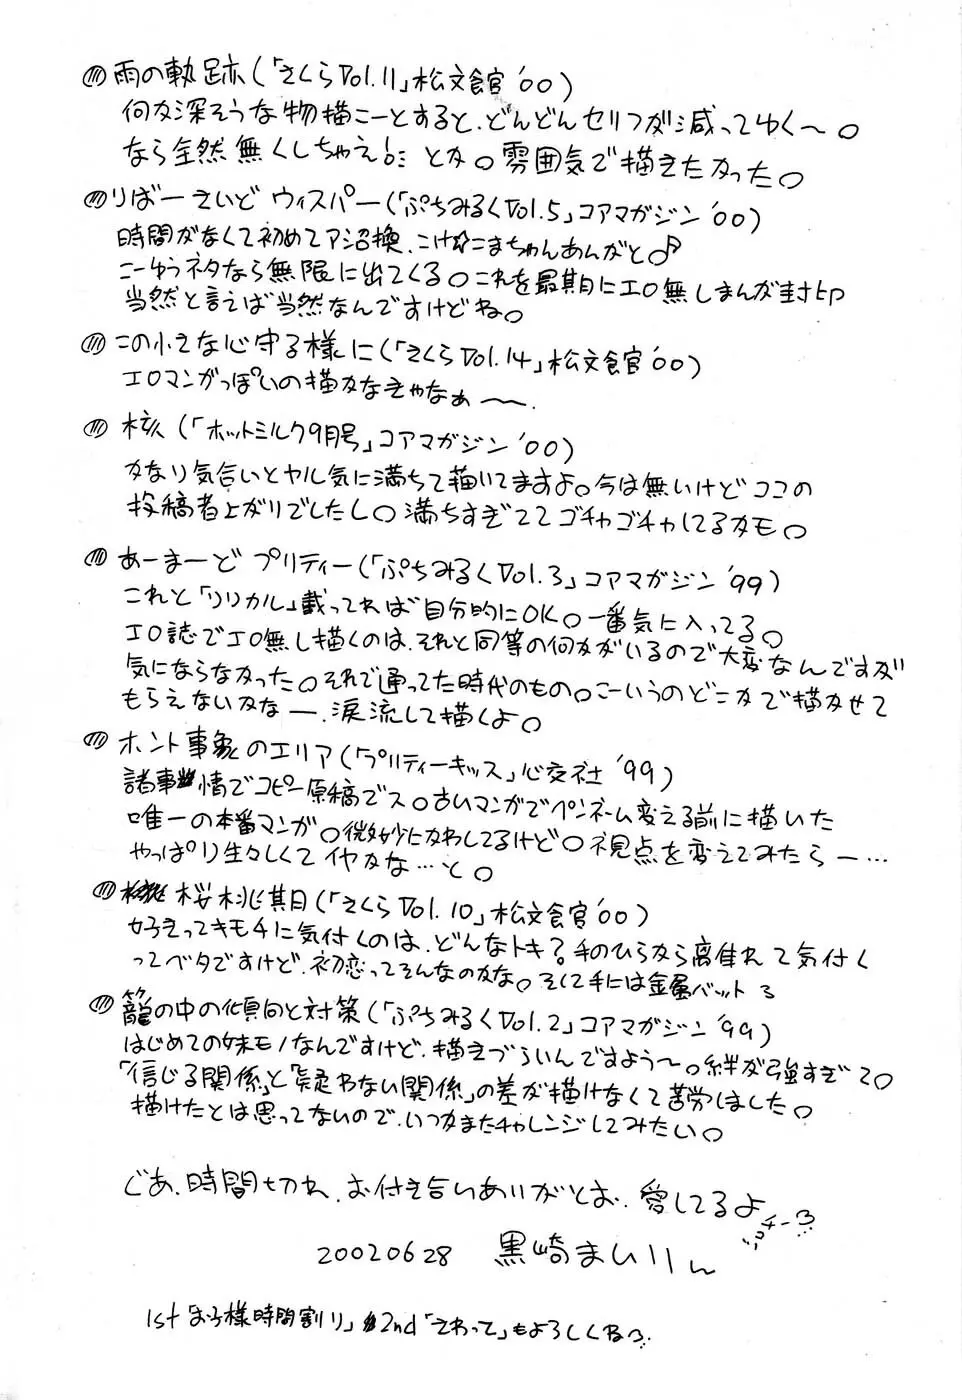 雨の軌跡(「さくらVol.11」松文館'00)
何か深そうな物描こーとすると、どんどんセリフが減ってゆく〜。
なら全然無くしちゃえ!! とか。雰囲気で描きたかった。
りばーさいど ウィスパー(「ぷちみるくVol.5」コアマガジン'00)
時間がなくて初めてア シ召喚、こけこまちゃんあんがと♪
こーゆうネタなら無限に出てくる。これを最期にエロ無しまんが封印
当然と言えば当然なんですけどね。
この小さな心守る様に(「さくらVol.14」松文館'00)
エロマンガっぽいの描かなきゃなぁ〜〜。
核(「ホットミルク9月号」コアマガジン'00)
かなり気合いとヤル気に満ちて描いてますよ。今は無いけどココの
投稿者上がりでしたし。満ちすぎててゴチャゴチャしてるかモ。
あーまーど プリティー(「ぷちみるくVol.3」コアマガジン'99)
これと「リリカル」載ってれば自分的にOK。一番気に入ってる。
エロ誌でエロ無し描くのは、それと同等の何かがいるので大変なんですが
気にならなかった。それで通ってた時代のもの。こーいうのどこかで描かせて
もらえないかなー、涙流して描くよ。
ホント事象のエリア(「プリティーキッス」心交社'99)
諸事情でコピー原稿でス。古いマンガでペンネーム変える前に描いた
唯一の本番マンガ。微妙にかわしてるけど。視点を変えてみたらー…
やっぱり生々しくてイヤかな…と。
桜桃期(「さくらVol.10」松文館'00)
好きってキモチに気付くのは、どんなトキ?手のひらから離れて気付く
ってベタですけど、初恋ってそんなのかな。そして手には金属バット3
籠の中の傾向と対策(「ぷちみるくVol.2」コアマガジン'99)
はじめての妹モノなんですけど、描きづらいんですよう〜。絆が強すぎて。
「信じる関係」と「疑わない関係」の差が描けなくて苦労しました。
描けたとは思ってないので、いつかまたチャレンジしてみたい。
じあ、時間切れ、お付き合いありがとお、愛してるよ
20020628 黒崎まいりん
1st「お子様時間割り」2nd「さわって」もよろしくねっ